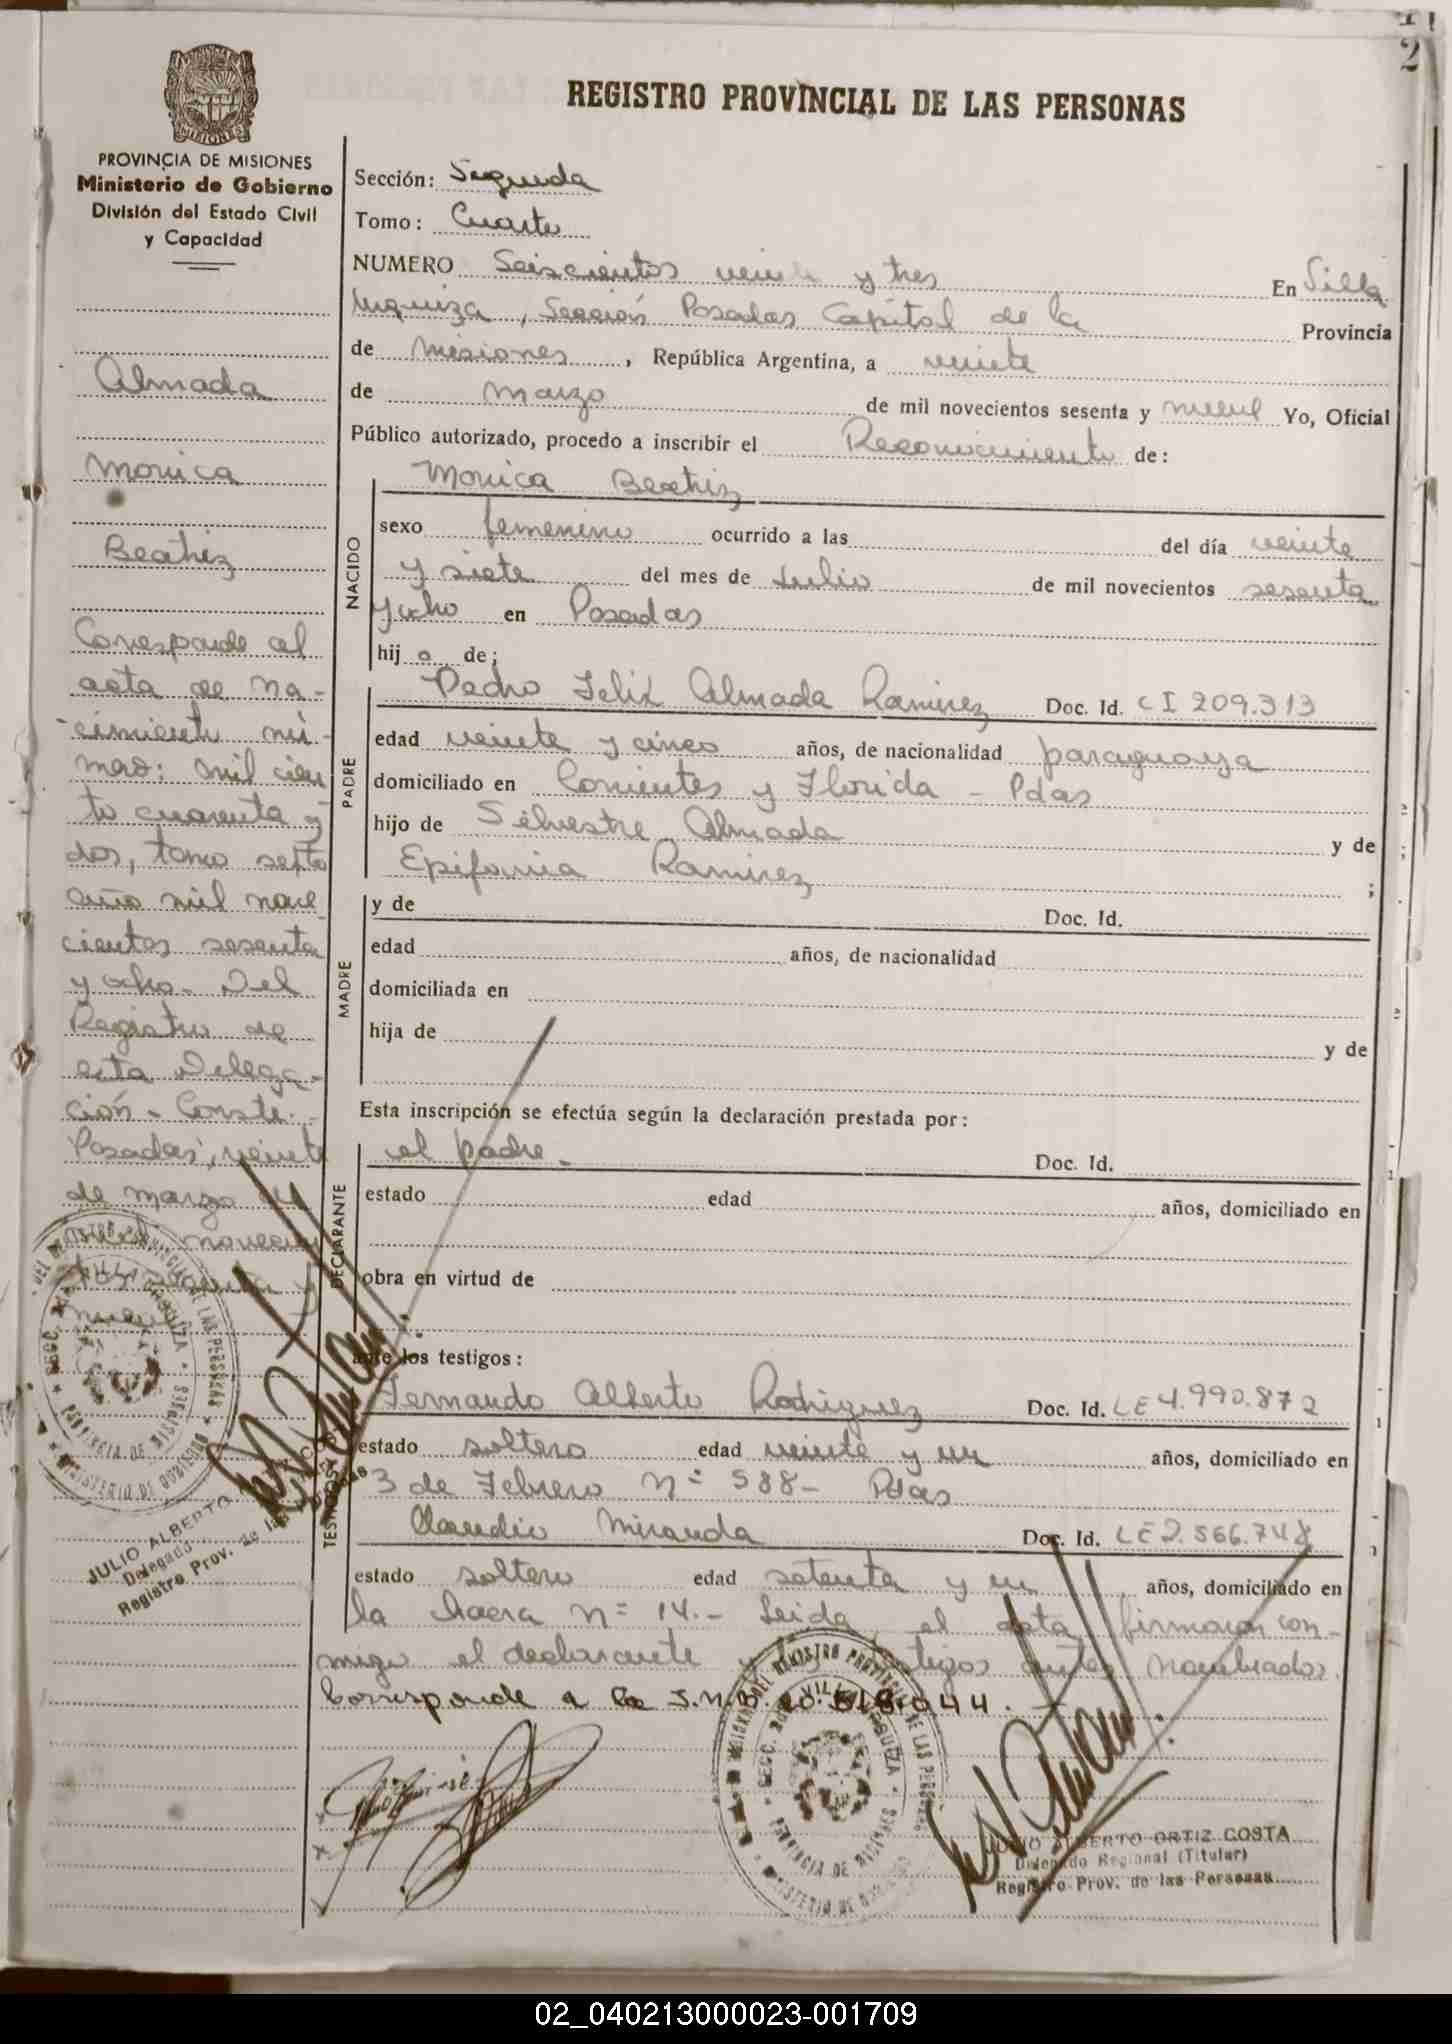 2
REGISTRO PROVINCIAL DE LAS PERSONAS
PROVINCIA DE MISIONES
Ministerio de Gobierno
División del Estado Civil
y Capacidad
Almada
Monica
Beatriz
Corresponde al
acta de na-
cimiento nú-
mero: mil cien
to cuarenta y
dos, tomo sexto
año mil nove
cientos sesenta
y ocho. Del
Registro de
esta Delega-
ción. Conste.-
Posadas, veinte
de marzo de
mil novecien
tos sesenta y
nueve
JULIO ALBERTO
Delegado
Registro Prov. de las
Sección: Segunda
Tomo: Cuarto
NUMERO Seiscientos veinte y tres En Villa
Urquiza, Sección Posadas Capital de la Provincia
de Misiones, República Argentina, a veinte
de marzo de mil novecientos sesenta y nueve Yo, Oficial
Público autorizado, procedo a inscribir el Reconocimiento de:
NACIDO
Monica Beatriz
sexo femenino ocurrido a las del día veinte
y siete del mes de Julio de mil novecientos sesenta
y ocho en Posadas
hij a de;
PADRE
Pedro Felix Almada Ramirez Doc. Id. CI 209.313
edad veinte y cinco años, de nacionalidad paraguaya
domiciliado en Corrientes y Florida - Pdas
hijo de Silvestre Almada y de
Epifania Ramirez ;
MADRE
y de Doc. Id.
edad años, de nacionalidad
domiciliada en
hija de y de
Esta inscripción se efectúa según la declaración prestada por:
DECLARANTE
el padre. Doc. Id.
estado edad años, domiciliado en
obra en virtud de
ante los testigos:
TESTIGOS
Fernando Alberto Rodriguez Doc. Id. LE 4.990.872
estado soltero edad veinte y un años, domiciliado en
3 de Febrero Nº 588- Pdas
Claudio Miranda Doc. Id. LE 2.566.748
estado soltero edad setenta y un años, domiciliado en
la chacra nº 14.- Leida el acta firman con-
migo el declarante y testigos antes nombrados.
Corresponde a la I.N.B. 20.618.044.
JULIO ALBERTO ORTIZ COSTA
Delegado Regional (Titular)
Registro Prov. de las Personas
02_040213000023-001709